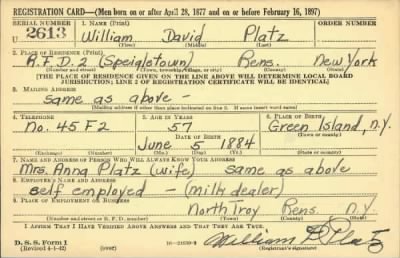 REGISTRATION CARD—(Men born on or after April 28, 1877 and on or before February 16, 1897)
SERIAL NUMBER 1. NAME (Print) ORDER NUMBER
U 2613 William David Platz
(First) (Middle) (Last)
2. PLACE OF RESIDENCE (Print)
R.F.D. 2 (Speigletown) Rens. New York
(Number and street) (Town, township, village, or city) (County) (State)
[THE PLACE OF RESIDENCE GIVEN ON THE LINE ABOVE WILL DETERMINE LOCAL BOARD
JURISDICTION; LINE 2 OF REGISTRATION CERTIFICATE WILL BE IDENTICAL]
3. MAILING ADDRESS
same as above -
[Mailing address if other than place indicated on line 2. If same insert word same]
4. TELEPHONE 5. AGE IN YEARS 6. PLACE OF BIRTH
no. 45 F 2 57 Green Island, n.y.
DATE OF BIRTH
June 5 1884
(Exchange) (Number) (Mo.) (Day) (Yr.) (Town or county) (State or country)
7. NAME AND ADDRESS OF PERSON WHO WILL ALWAYS KNOW YOUR ADDRESS
Mrs. Anna Platz (wife) same as above
8. EMPLOYER'S NAME AND ADDRESS
self employed - (milk dealer)
9. PLACE OF EMPLOYMENT OR BUSINESS
North Troy Rens. N.Y.
(Number and street or R. F. D. number) (Town) (County) (State)
I AFFIRM THAT I HAVE VERIFIED ABOVE ANSWERS AND THAT THEY ARE TRUE.
D. S. S. Form 1
(Revised 4-1-42) (over) 16-21630-2 William D. Platz
(Registrant's signature)